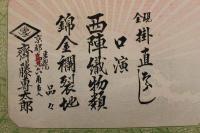 現金
掛直なし
口演
西陣織物類
錦金襴裂地
品々
京都
六角
齊藤専太郎